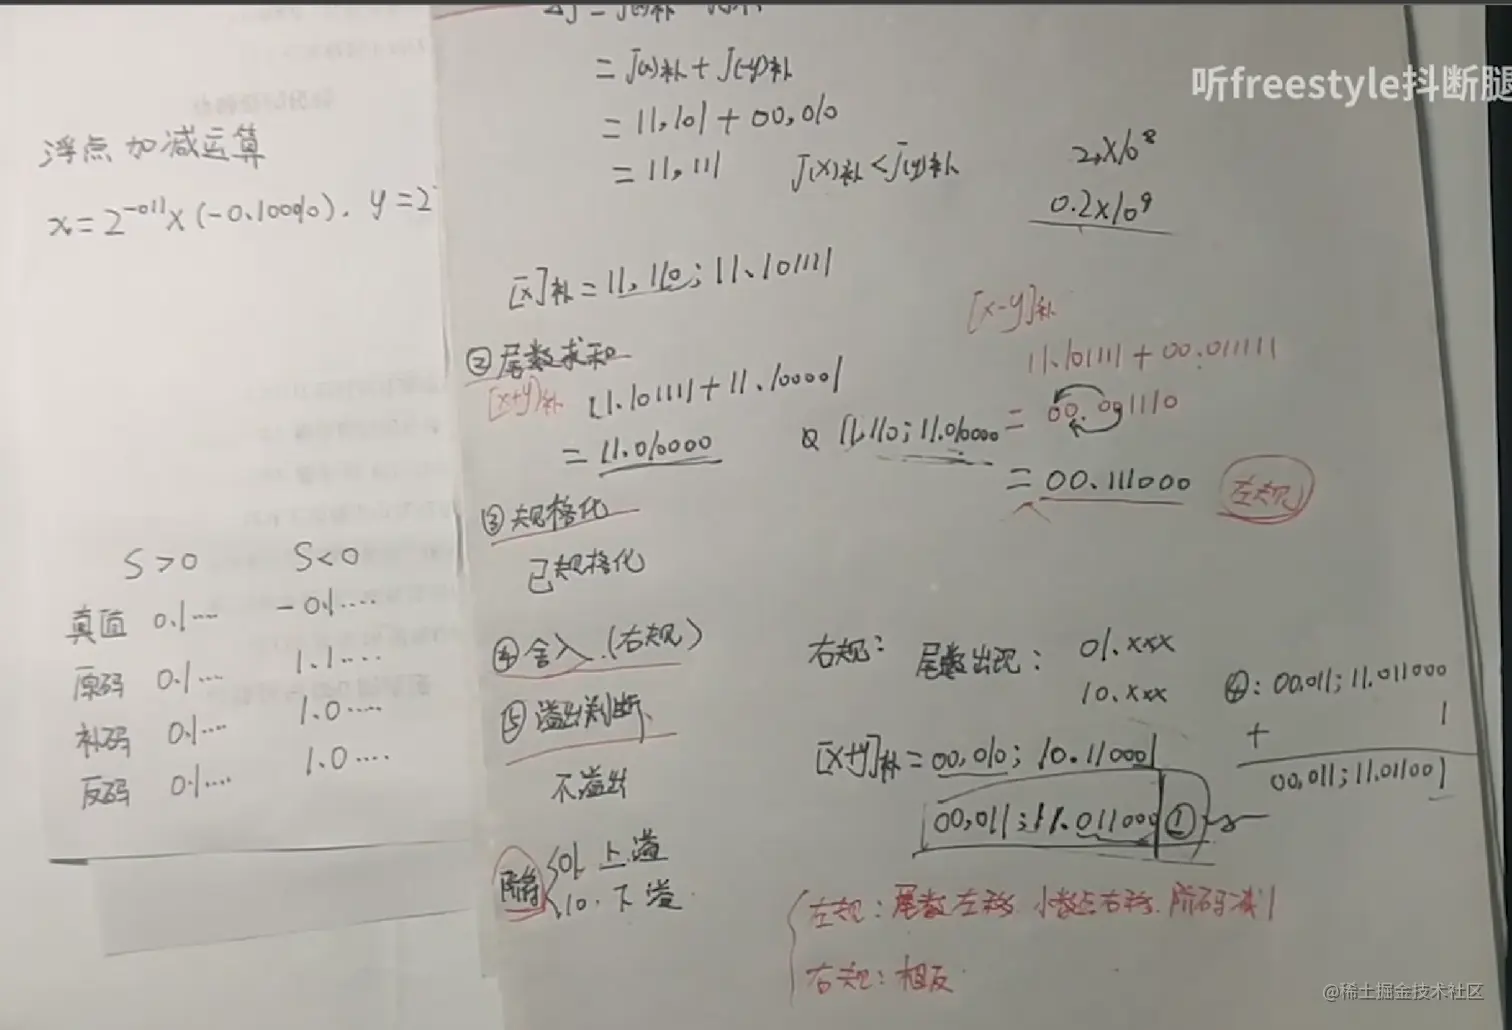 听freestyle抖断腿
浮点加减运算
x=2^-011×(-0.10010). y=2
S>0 S<0
真值 0.1… -0.1….
原码 0.1… 1.1….
补码 0.1… 1.0….
反码 0.1…. 1.0….
=J(x)补+J(-y)补
=11,101+00,010
=11,111 J(x)补<J(y)补
2×10^8
0.2×10^9
[x]补=11,110;11.101111
②尾数求和
[x+y]补 11.101111+11.100001
=11.010000
及 11,110;11.010000
[x-y]补
11.101111+00.011111
=00.001110
=00.111000 左规
③规格化
已规格化
④舍入.(右规)
⑤溢出判断、
不溢出
阶符 01.上溢
10.下溢
右规: 尾数出现: 01.xxx
10.xxx
[x+y]补=00,010;10.110001
00,011;11.011000①
④:00,011;11.011000
+ 1
00,011;11.011001
左规:尾数左移.小数点右移.阶码减1
右规:相反.
@稀土掘金技术社区